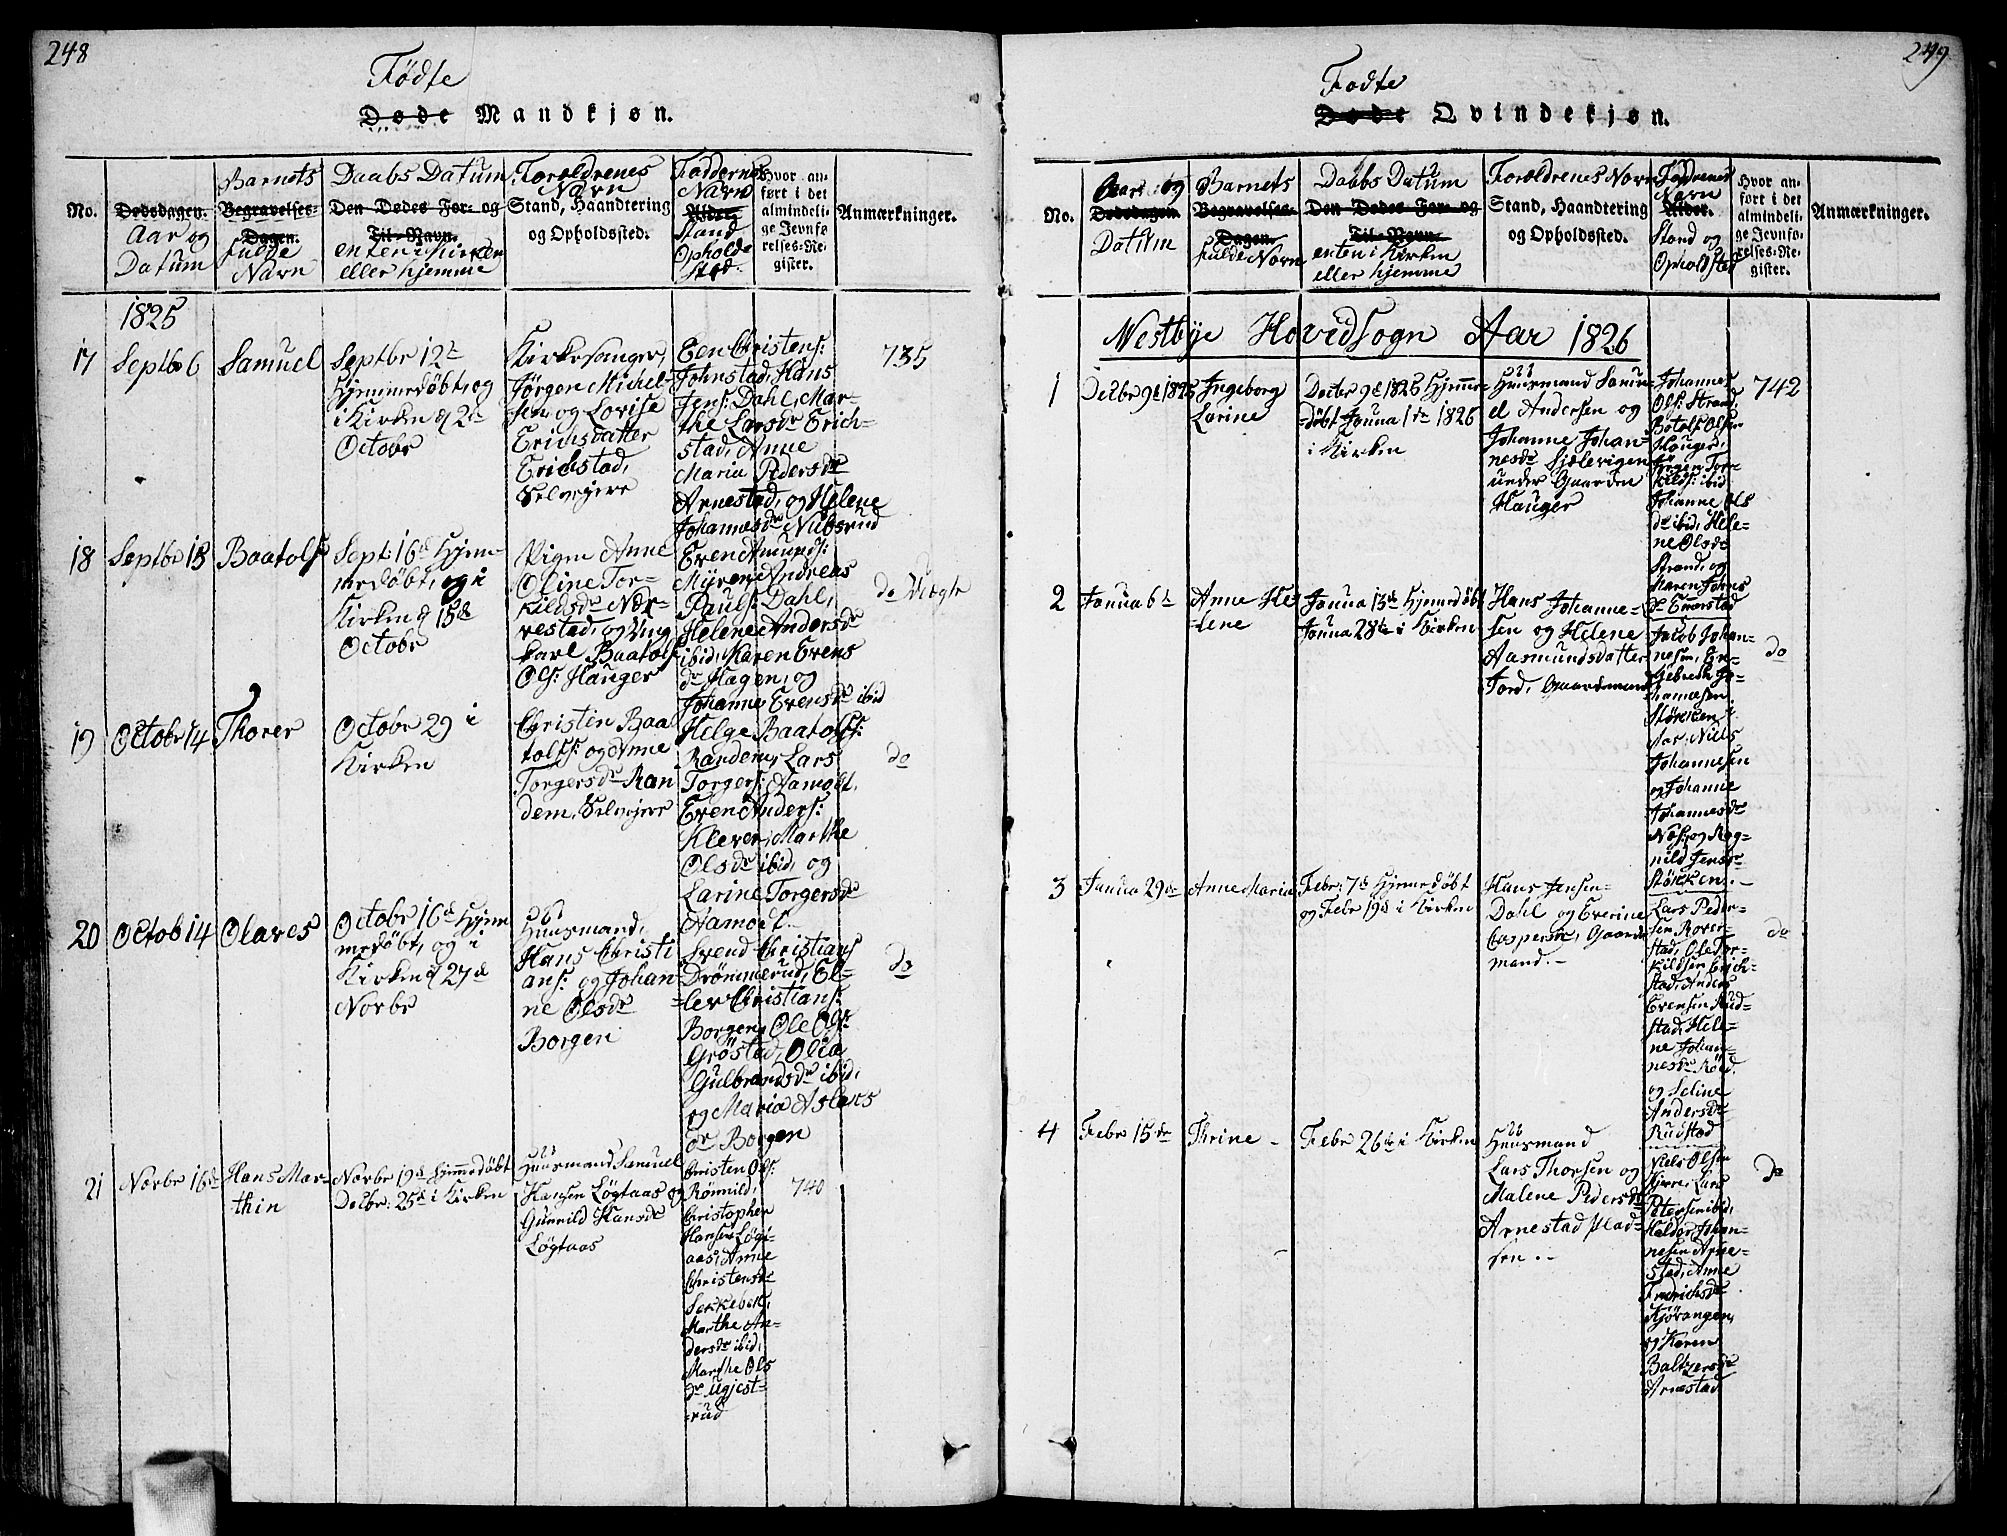 248
Fødte
Døde Mandkjøn.
No.
Dødsdagen.
Aar og
Datum
Barnets
Begravelses-
Dagen.
Fulde
Navn
Daabs Datum
Den Dødes For- og
Til-Navn.
enten i Kirken
eller hjemme
Forældrenes
Navn
Stand, Haandtering
og Opholdssted.
Faddernes
Navn
Alder.
Stand
Opholds
Sted.
Hvor an-
ført i det
almindeli-
ge Jevnfø-
relses-Re-
gister.
Anmærkninger.
1825
17
Septbr 6
Samuel
Septbr 12te
Hjemmedøbt, og
i Kirken d 2d
Octobr
Kirkesanger,
Jørgen Michel-
sen og Lovise
Erichsdatter
Erichstad,
Selvejere
Even Christens:
Johnstad, Hans
Jens: Dahl, Mar-
the Larsdr Erich-
stad, Anne
Maria Pedersdr
Arnestad, og Helene
Johannesdr Nubsrud
735
18
Septbr 13
Baatolf
Sept: 16d Hjem-
medøbt, og i
Kirken d 15d
Octobr
Pigen Anne
Oline Tor-
kildsdr Nær-
vestad, og Ung
karl Baatolf
Ols: Hauger
Even Amunds:
Myren, Andreas
Pauls: Dahl,
Helene Andersdr
ibid, Karen Evens
dr Hagen, og
Johanne Evensdr ibid
do Uægte
19
Octobr 14
Thorer
Octobr 29 i
Kirken
Christen Baa
tolfs: og Anne
Torgersdr Ran
dem, Selvejere
Helge Baatolfs:
Randem, Lars
Torgers: Aamodt,
Even Anders:
Klever, Marthe
Olsdr ibid, og
Larine Torgersdr
Aamodt.
do
20
Octob 14
Olaves
Octobr 16d Hjem
medøbt, og i
Kirken d 27d
Novbr
Huusmand,
Hans Christi
ans: og Johan
ne Olsdr
Borgen
Svend Christians
Drømmerud, El-
lev Christians:
Borgen, Ole Ols:
Grøstad, Olia
Gulbrandsdr ibid,
og Maria Aslaks
dr Borgen
do
21
Novbr 16d
Hans Mar-
thin
Novbr 19d Hjemmedøbt
Decbr: 25d i Kirken
Huusmand Samuel
Hansen Løgtaas og
Gunnild Hansdr
Løgtaas
Christen Ols:
Rønnild,
Christopher
Hansen Løgt-
aas, Anne
Christensdr
Sekkebek,
Marthe An-
dersdr ibid,
Marthe Ols
dr Ugjest-
rud
740
249
Fødte
Døde Qvindekjøn.
No.
Aars og
Dødsdagen.
Datum
Barnets
Begravelses-
Dagen.
fulde Navn
Daabs Datum
Den Dødes For- og
Til-Navn.
enten i Kirken
eller hjemme
Forældrenes Navn
Stand, Haandtering
og Opholdssted.
Fadrenes
Navn
Alder.
Stand og
Opholdsted
Hvor an-
ført i det
almindeli-
ge Jevnfø-
relses-Re-
gister.
Anmærkninger.
Westbye Hovedsogn Aar 1826
1
Decbr 9d 1825
Ingeborg
Larine
Decbr 9d 1825 Hjemme-
døbt Janua 1de 1826
i Kirken
Huusmand Samu-
el Andersen og
Johanne Johan-
nesdr Sjælevigen
under Gaarden
Hauger
Johannes
Ols: Strand
Botolf Olsen
Hauger,
Jørgen Tor-
kilds: ibid
Johanne Ols
dr ibid, Hele-
ne Olsdr
Strand, og
Maren Johns
dr Enerstad
742
2
Janua 6te
Anne He
lene
Janua 13de Hjemmedøbt
Janua 28de i Kirken
Hans Johanne-
sen og Helene
Aasmundsdatter
Jord, Gaardmand
Jacob Johan-
nesen, En-
gebreth Jo-
hannesen
Størken i
Aas, Niels
Johannesen
og Johanne
Johannesdr
Næs, og Rag-
nild Jensdr
Størken.
do
3
Janua 29de
Anne Maria
Febr: 7d Hjemmedøbt
og Febr 19d i Kirken
Hans Jensen
Dahl og Everine
Caspersen, Gaard-
mand.
Lars Peder-
sen Rover-
stad, Ole Tor-
kildsen Erich-
stad, Anders
Evensen Rud-
stad, Hele-
ne Johan-
nesdr Rød,
og Seline
Andersdr
Rudstad
do
4
Febr 15de
Thrine
Febr 26de i Kirken
Huusmand
Lars Thorsen og
Malene Pedersdr
Arnestad plad-
sen.
Niels Olsen
Kjerre, Lars
Petersen ibid,
Haldor Johan-
nesen Arne-
stad, Anne
Fredrichsdr
Kjøvangen,
og Karen
Baltzersdr
Arnestad
do